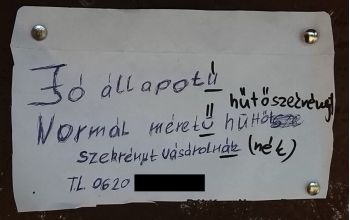 Jó állapotú
hűtőszekrényt
Normál méretű hűtő
szekrényt vásárolnák (nék)
TL 0620